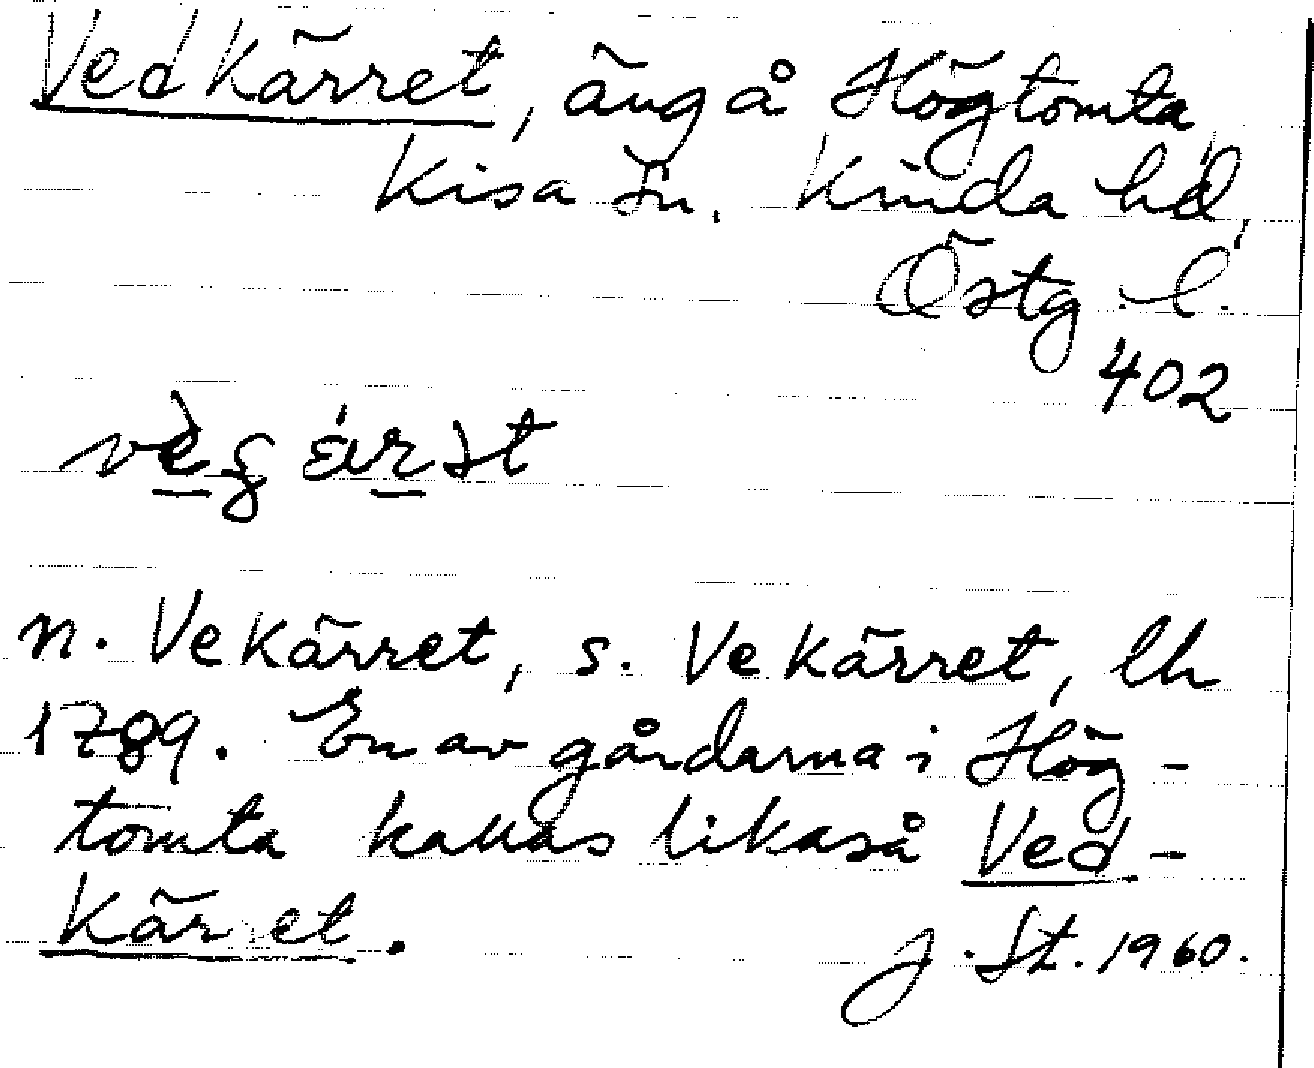 Vedkärret, äng å Högtomta,
Kisa sn. Kinda hd,
Östg. l.
402
n. Vekärret, s. Vekärret, lh
1789. En av gårdarna i Hög-
tomta kallas likaså Ved-
kärret.
J. St. 1960.